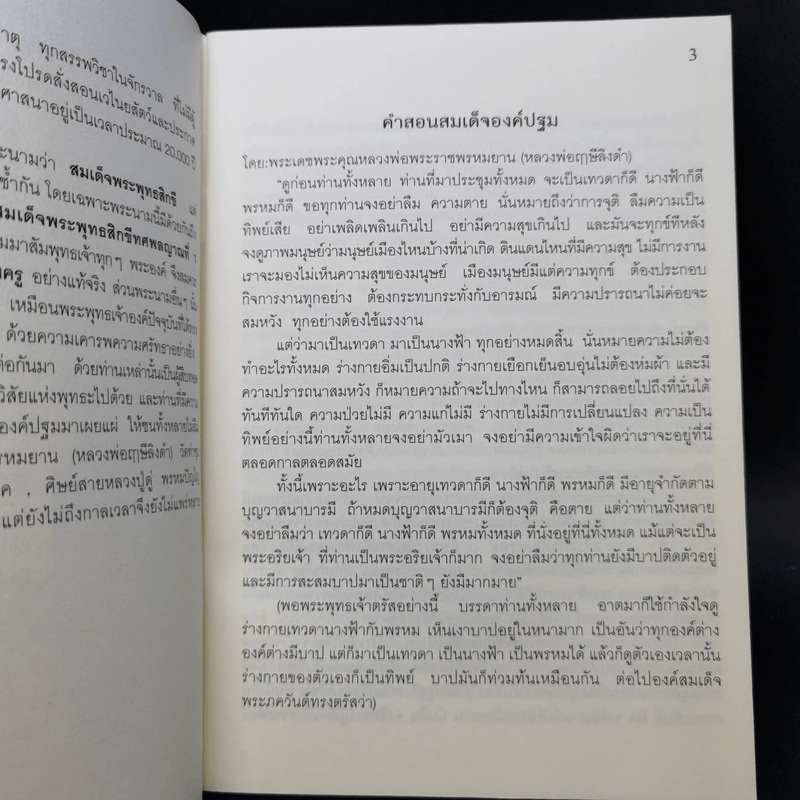 าตุ ทุกสรรพวิชาในจักรวาล ที่ไม่มีผู้
รงโปรดสั่งสอนเวไนยสัตว์และประกาศ
ศาสนาอยู่เป็นเวลาประมาณ 20,000 ปี
ะนามว่า สมเด็จพระพุทธสิกขี
ซ้ำกัน โดยเฉพาะพระนามนี้มีด้วยกันอีก
มเด็จพระพุทธสิกขีทศพลญาณที่ 1
มมาสัมพุทธเจ้าทุกๆ พระองค์ จึงสมควร
ครู อย่างแท้จริง ส่วนพระนามอื่นๆ นั้น
เหมือนพระพุทธเจ้าองค์ปัจจุบันที่ได้
ด้วยความเคารพความศรัทธาอย่างยิ่ง
ต่อกันมา ด้วยท่านเหล่านั้นเป็นผู้สืบทอด
วิสัยแห่งพุทธะไปด้วย และท่านที่มีความ
องค์ปฐมมาเผยแผ่ ให้ชนทั้งหลายไม่ลืม
รหมยาน (หลวงพ่อฤาษีลิงดำ) วัดท่าซุง
ค , ศิษย์สายหลวงปู่ดู่ พรหมปัญโญ
แต่ยังไม่ถึงกาลเวลาจึงยังไม่แพร่หลาย
3
คำสอนสมเด็จองค์ปฐม
โดย:พระเดชพระคุณหลวงพ่อพระราชพรหมยาน (หลวงพ่อฤาษีลิงดำ)
"ดูก่อนท่านทั้งหลาย ท่านที่มาประชุมทั้งหมด จะเป็นเทวดาก็ดี นางฟ้าก็ดี
พรหมก็ดี ขอทุกท่านจงอย่าลืม ความตาย นั่นหมายถึงว่าการจุติ ลืมความเป็น
ทิพย์เสีย อย่าเพลิดเพลินเกินไป อย่ามีความสุขเกินไป และมันจะทุกข์ทีหลัง
จงดูภาพมนุษย์ว่ามนุษย์เมืองไหนบ้างที่น่าเกิด ดินแดนไหนที่มีความสุข ไม่มีการงาน
เราจะมองไม่เห็นความสุขของมนุษย์ เมืองมนุษย์มีแต่ความทุกข์ ต้องประกอบ
กิจการงานทุกอย่าง ต้องกระทบกระทั่งกับอารมณ์ มีความปรารถนาไม่ค่อยจะ
สมหวัง ทุกอย่างต้องใช้แรงงาน
แต่ว่ามาเป็นเทวดา มาเป็นนางฟ้า ทุกอย่างหมดสิ้น นั่นหมายความไม่ต้อง
ทำอะไรทั้งหมด ร่างกายอิ่มเป็นปกติ ร่างกายเยือกเย็นอบอุ่นไม่ต้องห่มผ้า และมี
ความปรารถนาสมหวัง ก็หมายความถ้าจะไปทางไหน ก็สามารถลอยไปถึงที่นั่นได้
ทันทีทันใด ความป่วยไม่มี ความแก่ไม่มี ร่างกายไม่มีการเปลี่ยนแปลง ความเป็น
ทิพย์อย่างนี้ท่านทั้งหลายจงอย่ามัวเมา จงอย่ามีความเข้าใจผิดว่าเราจะอยู่ที่นี่
ตลอดกาลตลอดสมัย
ทั้งนี้เพราะอะไร เพราะอายุเทวดาก็ดี นางฟ้าก็ดี พรหมก็ดี มีอายุจำกัดตาม
บุญวาสนาบารมี ถ้าหมดบุญวาสนาบารมีก็ต้องจุติ คือตาย แต่ว่าท่านทั้งหลาย
จงอย่าลืมว่า เทวดาก็ดี นางฟ้าก็ดี พรหมทั้งหมด ที่นั่งอยู่ที่นี่ทั้งหมด แม้แต่จะเป็น
พระอริยเจ้า ที่ท่านเป็นพระอริยเจ้าก็มาก จงอย่าลืมว่าทุกท่านยังมีบาปติดตัวอยู่
และมีการสะสมบาปมาเป็นชาติๆ ยังมีมากมาย"
(พอพระพุทธเจ้าตรัสอย่างนี้ บรรดาท่านทั้งหลาย อาตมาก็ใช้กำลังใจดู
ร่างกายเทวดานางฟ้ากับพรหม เห็นเงาบาปอยู่ในหนามาก เป็นอันว่าทุกองค์ต่าง
องค์ต่างมีบาป แต่ก็มาเป็นเทวดา เป็นนางฟ้า เป็นพรหมได้ แล้วก็ดูตัวเองเวลานั้น
ร่างกายของตัวเองก็เป็นทิพย์ บาปมันก็ท่วมท้นเหมือนกัน ต่อไปองค์สมเด็จ
พระภควันต์ทรงตรัสว่า)